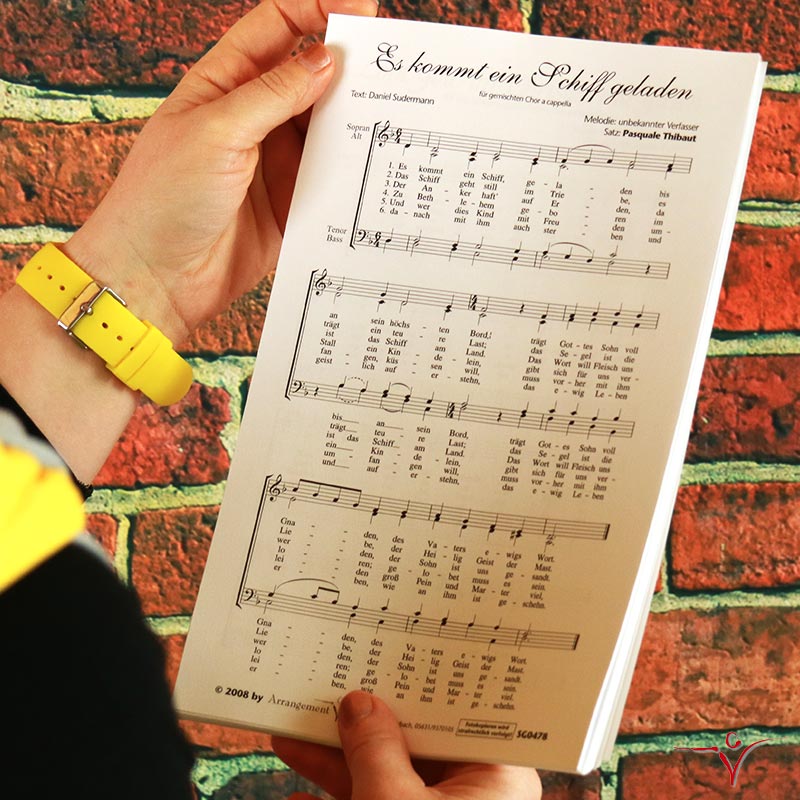 Es kommt ein Schiff geladen
für gemischten Chor a cappella
Text: Daniel Sudermann
Melodie: unbekannter Verfasser
Satz: Pasquale Thibaut
Sopran
Alt
1. Es kommt ein Schiff, ge - la - den bis
2. Das Schiff geht still im Trie - be, es
3. Der An - ker haft' auf Er - den, da
4. Zu Beth - le - hem ge - bo - ren im
5. Und wer dies Kind mit Freu - den um -
6. da - nach mit ihm auch ster - ben und
Tenor
Bass
an sein höchs - ten Bord, trägt Got - tes Sohn voll
trägt ein teu - re Last; das Se - gel ist die
ist das Schiff am Land. Das Wort will Fleisch uns
Stall ein Kin - de - lein, gibt sich für uns ver -
fan - gen, küs - sen will, muss vor - her mit ihm
geist - lich auf er - stehn, das e - wig Le - ben
bis an sein Bord, trägt Got - es Sohn voll
trägt teu - re Last; das Se - gel ist die
ist das Schiff am Land. Das Wort will Fleisch uns
ein Kin - de - lein, gibt sich für uns ver -
um - fan - gen will, muss vor - her mit ihm
und auf er - stehn, das e - wig Le - ben
Gna - den, des Va - ters e - wigs Wort.
Lie - be, der Hei - lig Geist der Mast.
wer - den, der Sohn ist uns ge - sandt.
lo - ren; ge - lo - bet muss es sein.
lei - den groß Pein und Mar - ter viel,
er - ben, wie an ihm ist ge - schehn.
Gna - den, des Va - ters e - wigs Wort.
Lie - be, der Hei - lig Geist der Mast.
wer - den, der Sohn ist uns ge - sandt.
lo - ren; ge - lo - bet muss es sein.
lei - den groß Pein und Mar - ter viel,
er - ben, wie an ihm ist ge - schehn.
© 2008 by Arrangement
05631/9370105
Fotokopieren wird
strafrechtlich verfolgt!
SG0478